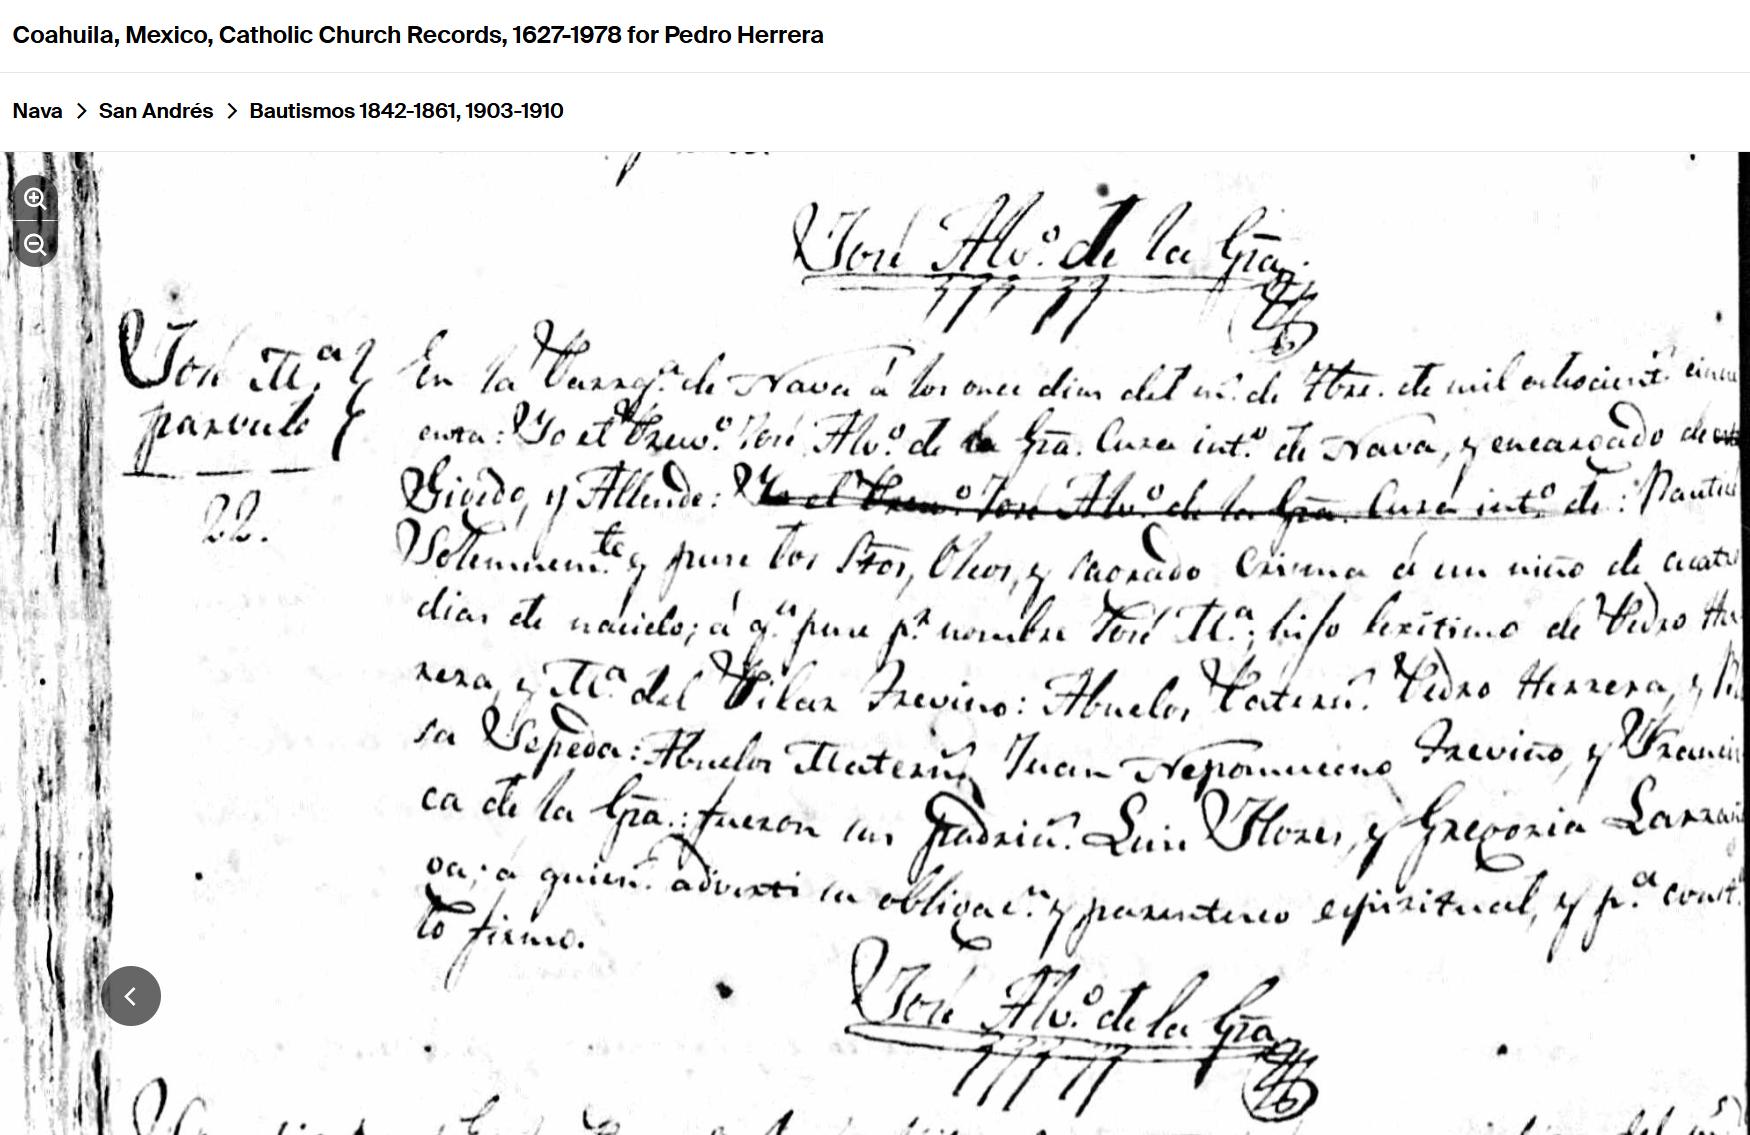 Coahuila, Mexico, Catholic Church Records, 1627-1978 for Pedro Herrera
Nava > San Andrés > Bautismos 1842-1861, 1903-1910
José Alv.º de la Gra.
José M.ª
parvulo
22.
En la Parroq.ª de Nava á los once dias del m.s de 7bre. de mil ochocient.s cincu
enta: Yo el Presv.º José Alv.º de la Gra. Cura int.º de Nava, y encargado de
Gigedo, y Allende: Yo el Presv.º José Alv.º de la Gra. Cura int.º de: Bautisé
Solemnem.te y puse los Stos, Oleos, y sagrado Crisma á un niño de cuatro
dias de nacido; á q.n puse p.r nombre José M.ª; hijo lexitimo de Pedro He
rrera, y M.ª del Pilar Trevino: Abuelos Patern.s Pedro Herrera, y
sa Sepeda: Abuelos Matern.s Juan Nepomuceno Treviño, y Francis
ca de la Gra.: fueron sus Padrin.s Luis Flores, y Gregoria Larrai
oa; á quien.s adverti su obligac.n y parentesco espiritual, y p.ª const.ª
lo firmo.
José Alv.º de la Gra